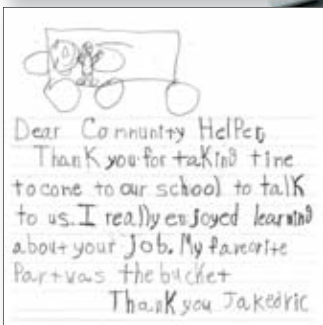 Dear Community Helper,
Thank you for taking time
to come to our school to talk
to us. I really enjoyed learning
about your job. My favorite
Part was the bucket
Thank you Jakedric